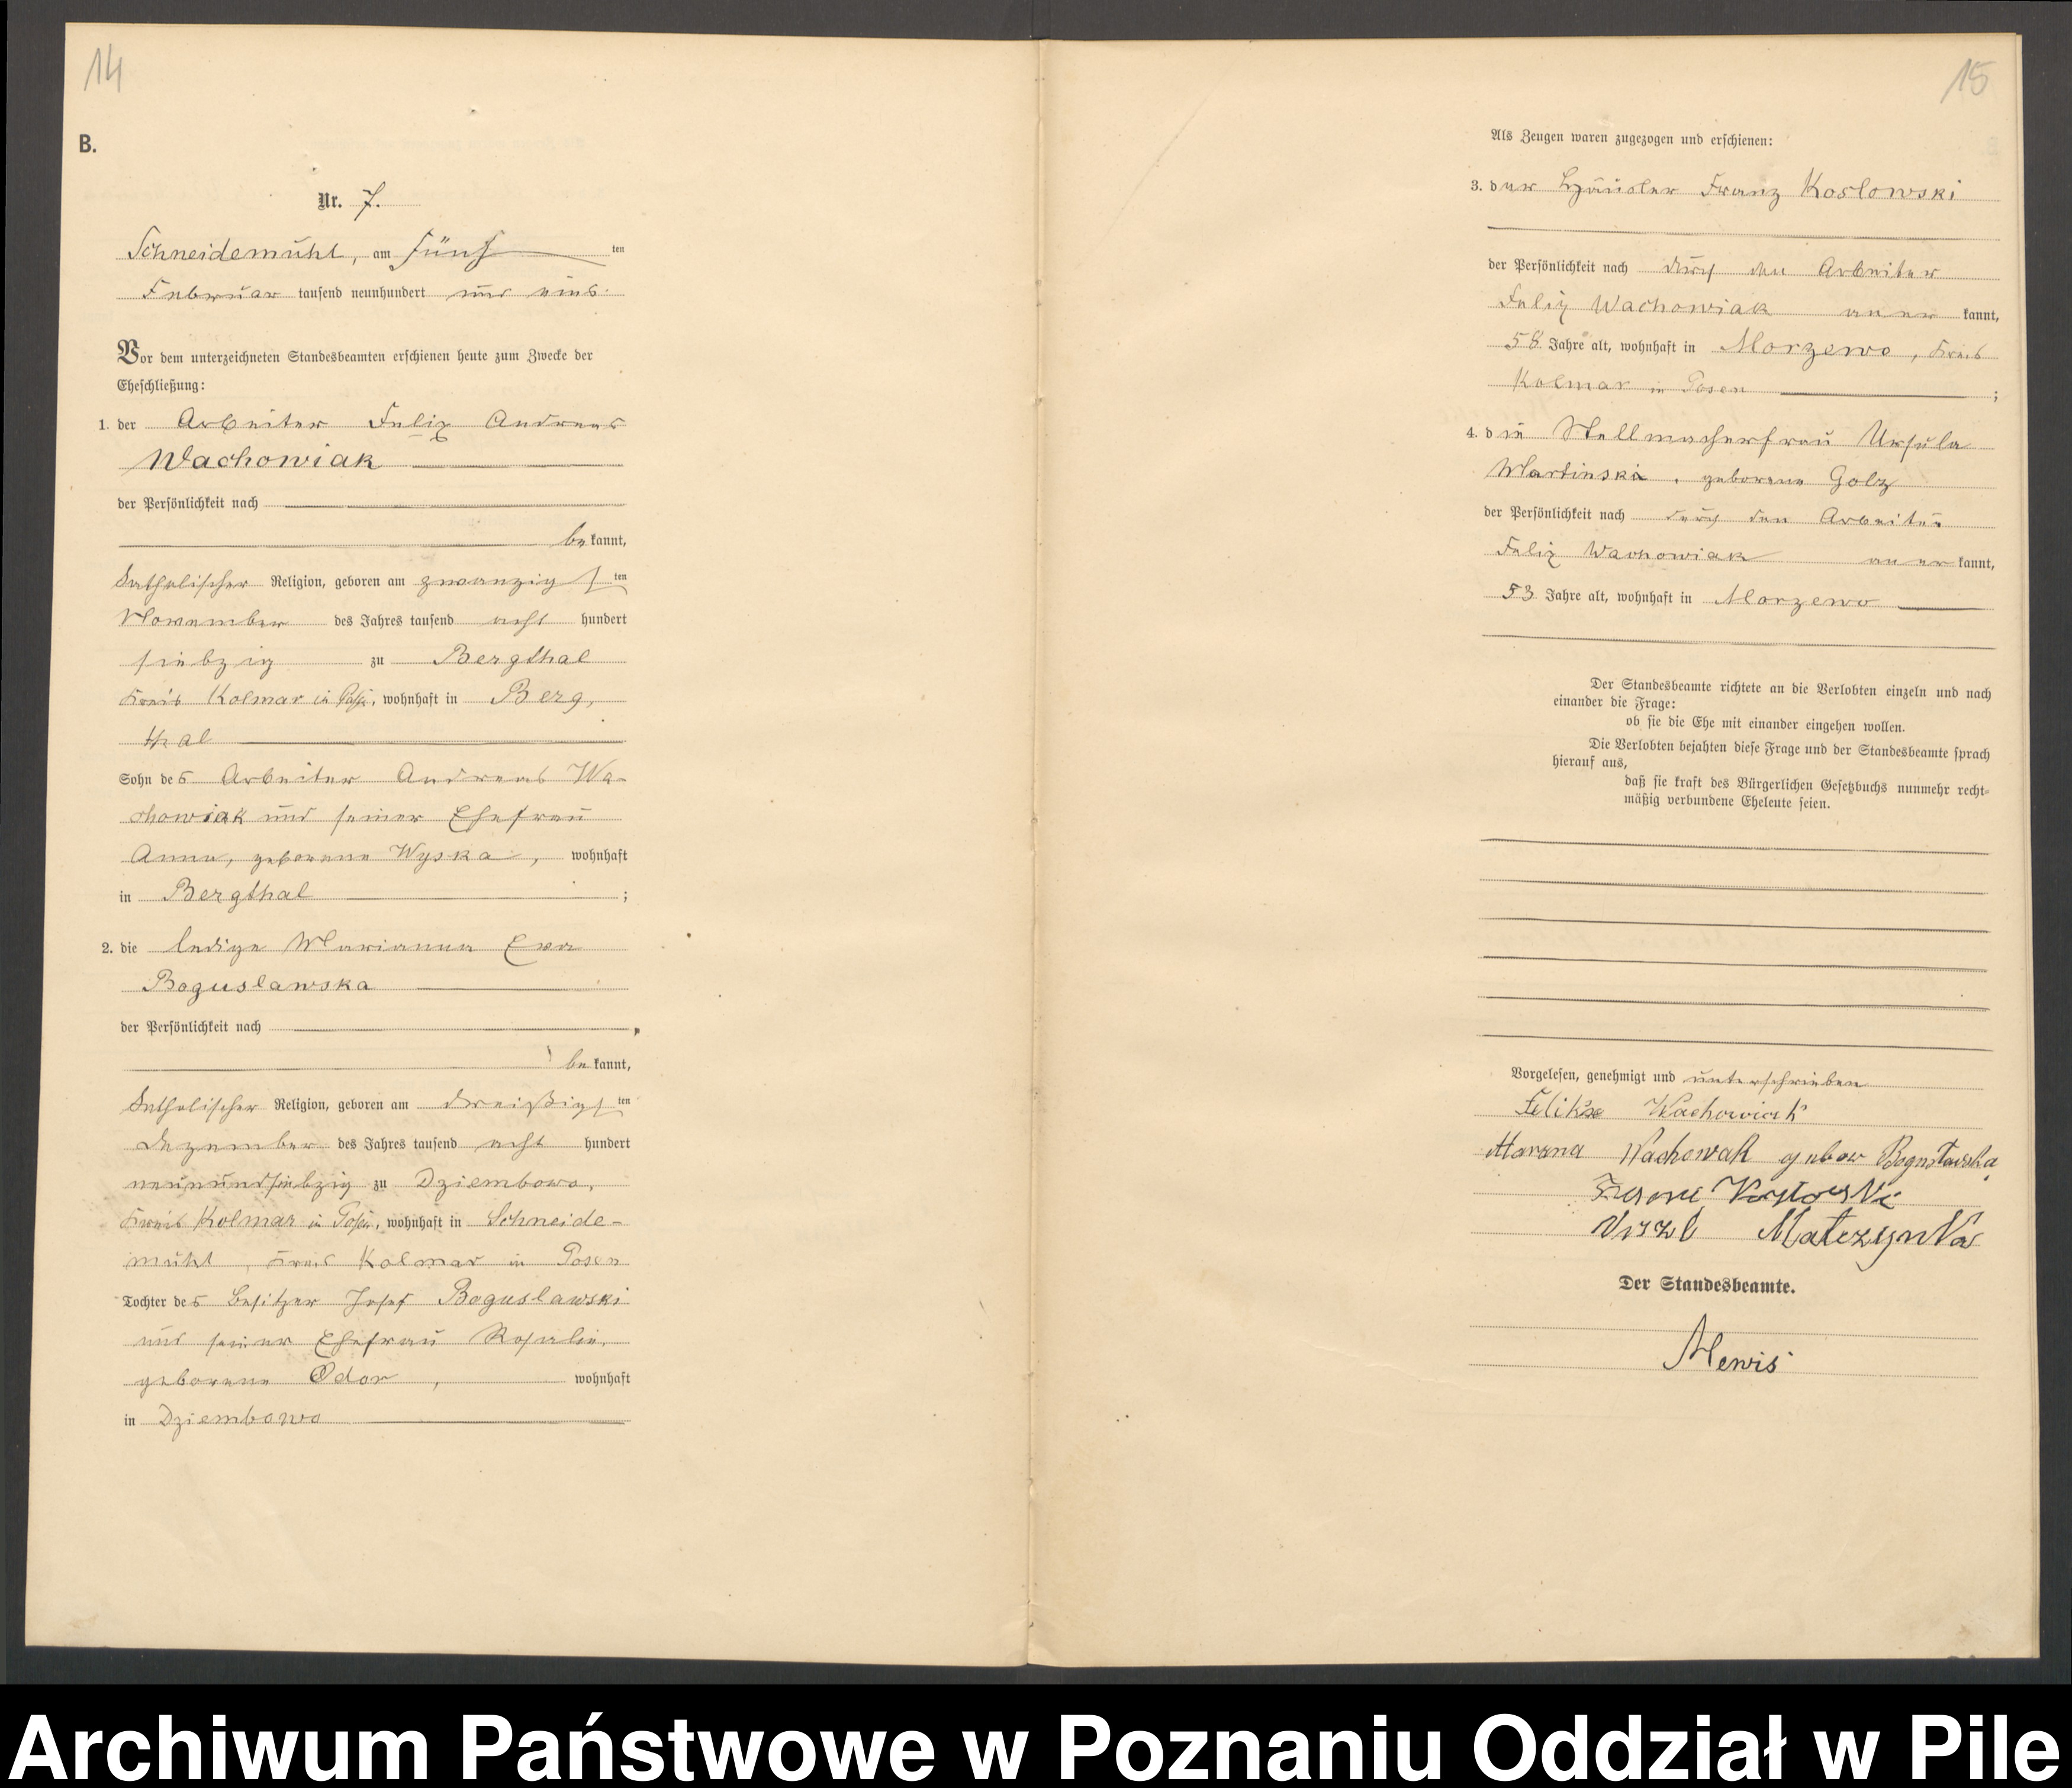 14
B.
Nr. 7.
Schneidemühl, am fünften
Februar tausend neunhundert und eins.
Vor dem unterzeichneten Standesbeamten erschienen heute zum Zwecke der
Eheschließung:
1. der Arbeiter Felix Andreas
Wachowiak
der Persönlichkeit nach
bekannt,
katholischer Religion, geboren am zwanzigsten
November des Jahres tausend achthundert
siebzig zu Bergthal
Kreis Kolmar in Posen, wohnhaft in Berg-
thal
Sohn des Arbeiter Andreas Wa-
chowiak und seiner Ehefrau
Anna, geborene Wyska, wohnhaft
in Bergthal ;
2. die ledige Marianna Eva
Boguslawska
der Persönlichkeit nach
bekannt,
katholischer Religion, geboren am dreißigsten
Dezember des Jahres tausend achthundert
neunundsiebzig zu Dziembowo,
Kreis Kolmar in Posen, wohnhaft in Schneide-
mühl, Kreis Kolmar in Posen
Tochter des Besitzer Josef Boguslawski
und seiner Ehefrau Rosalie,
geborene Odor, wohnhaft
in Dziembowo
15
Als Zeugen waren zugezogen und erschienen:
3. der Häusler Franz Koslowski
der Persönlichkeit nach durch den Arbeiter
Felix Wachowiak anerkannt,
58 Jahre alt, wohnhaft in Morzewo, Kreis
Kolmar in Posen ;
4. die Stellmacherfrau Ursula
Martinska, geborene Golz
der Persönlichkeit nach durch den Arbeiter
Felix Wachowiak anerkannt,
53 Jahre alt, wohnhaft in Morzewo
Der Standesbeamte richtete an die Verlobten einzeln und nach
einander die Frage:
ob sie die Ehe mit einander eingehen wollen.
Die Verlobten bejahten diese Frage und der Standesbeamte sprach
hierauf aus,
daß sie kraft des Bürgerlichen Gesetzbuchs nunmehr recht-
mäßig verbundene Eheleute seien.
Vorgelesen, genehmigt und unterschrieben
Wachowiak
Wachowak gebor Bogusławska
Der Standesbeamte.
Mewis
Archiwum Państwowe w Poznaniu Oddział w Pile